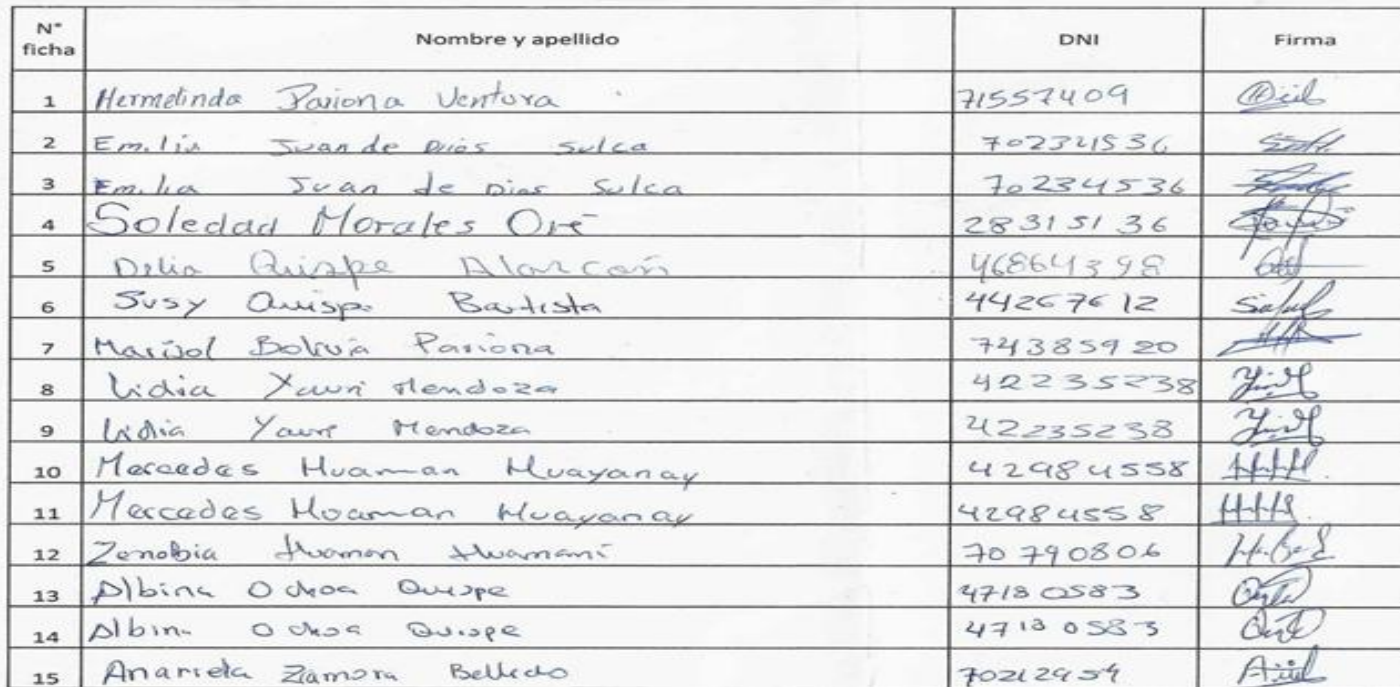 N° ficha Nombre y apellido DNI Firma
1 Hermelinda Pariona Ventura 71557409
2 Emilia Juan de Dios Sulca 70234536
3 Emilia Juan de Dios Sulca 70234536
4 Soledad Morales Oré 28315136
5 Delia Quispe Alarcón 46864398
6 Susy Quispe Bautista 44267612
7 Marisol Bolivia Pariona 74385920
8 Lidia Yauri Mendoza 42235238
9 Lidia Yauri Mendoza 42235238
10 Mercedes Huaman Huayanay 42984558
11 Mercedes Huaman Huayanay 42984558
12 Zenobia Huaman Huamani 70790806
13 Albina Ochoa Quispe 47180583
14 Albina Ochoa Quispe 47180583
15 Anariela Zamora Bellido 70212954